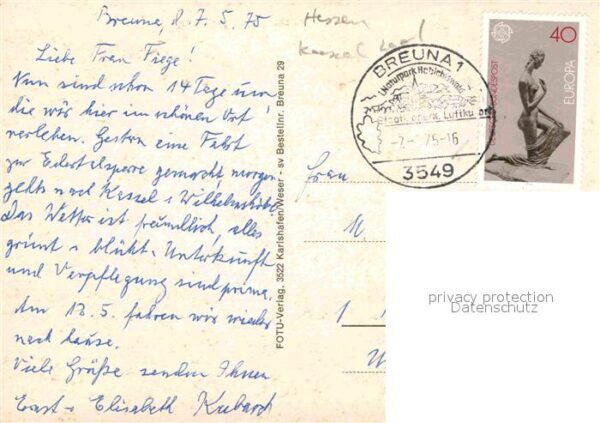 Breuna, d. 7. 5. 75
Liebe Frau Fiege!
Nun sind schon 14 Tage um
die wir hier im schönen Ort
verleben. Gestern eine Fahrt
zur Edertalsperre gemacht, morgen
gehts nach Kassel u Wilhelmshöhe.
Das Wetter ist freundlich, alles
grünt u blüht. Unterkunft
und Verpflegung sind prima.
Am 13. 5. fahren wir wieder
nach hause.
Viele Grüße senden Ihnen
Ernst u Elisabeth
FOTU-Verlag, 3522 Karlshafen/Weser - sv Bestellnr. Breuna 29
Hessen
Kassel Land
BREUNA 1
Naturpark Habichtswald
Staatl. anerk. Luftkurort
-7.-5.75-16
3549
40
EUROPA
DEUTSCHE BUNDESPOST
Frau
privacy protection
Datenschutz